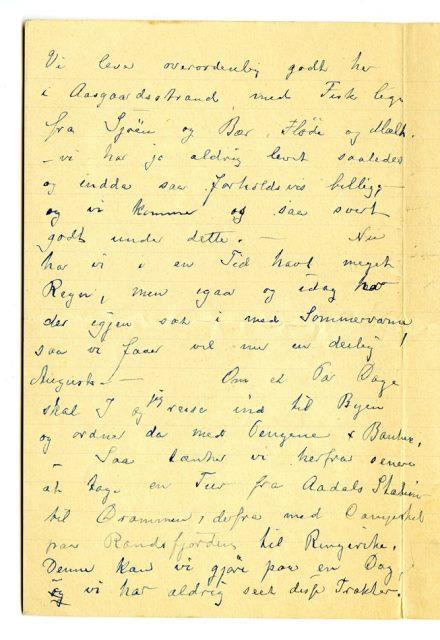 Vi lever overordenlig godt her
i Aasgaardsstrand med Fisk lige
fra Sjöen og Bær, Flöde og Melk.
– vi har jo aldrig levet saaledes
og endda saa forholdsvis billigt,
og vi kommer os saa svert
godt under dette. – Nu
har vi i en Tid havt meget
Regn, men igaar og idag har
det igjen sat i med Sommervarme
saa vi faaer vel nu en deilig!
August. – Om et Par Dage
skal I og jeg reise ind til Byen
og ordne da med Pengene & Banken,
– Saa tænker vi herfra senere
at tage en Tur fra Aadals Station
til Drammen, derfra med
paa Randsfjorden til Ringerike.
Denne kan vi gjöre paa en Dag,
og vi har aldrig seet disse Trakter.